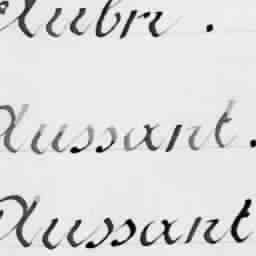 Aubri .
Aussant .
Aussant